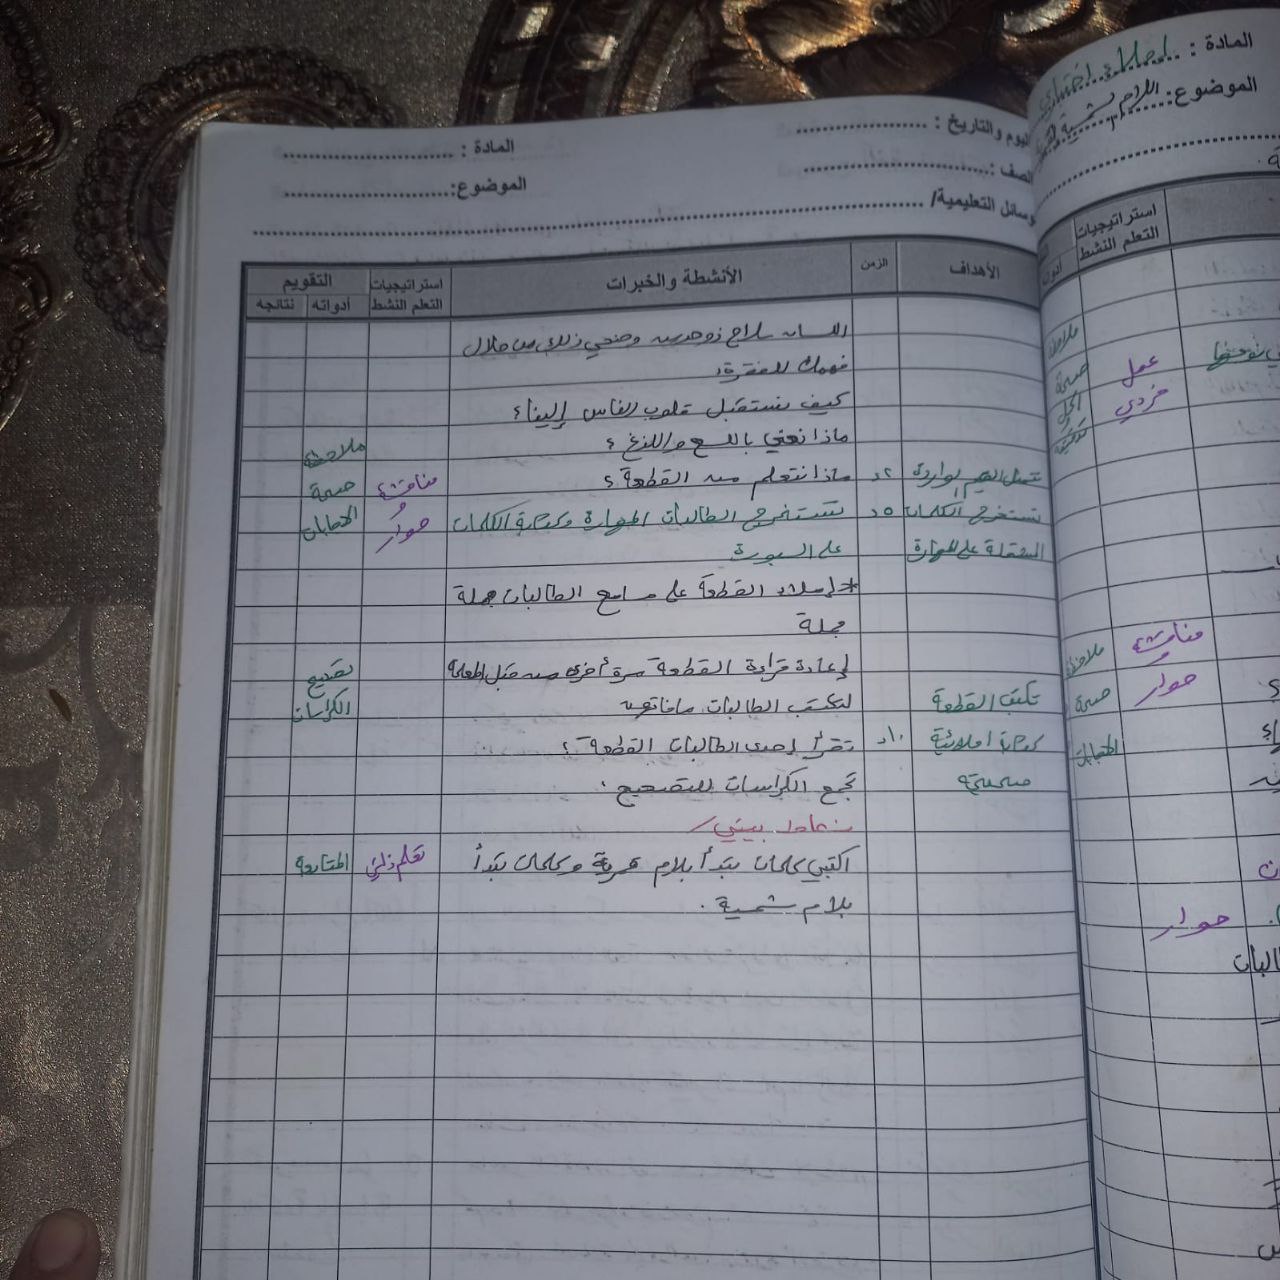 اليوم والتاريخ : ........................ المادة : ........................
الصف : ........................ الموضوع: ........................
الوسائل التعليمية/ ........................
الأهداف الزمن الأنشطة والخبرات استراتيجيات التعلم النشط التقويم
أدواته نتائجه
اللسان سلاح ذو حدين وضحي ذلك من خلال
فهمك للفقرة؟
كيف نستقبل قلوب الناس إلينا؟
ماذا نعني باللسع واللدغ ؟ ملاحظة
تتمثل القيم الواردة ٢د ماذا نتعلم من القطعة ؟ مناقشة صحة
تستخرج الكلمات ٥د تستخرج الطالبات المهارة وكتابة الكلمات و حوار الاجابات
المشتملة على المهارة على السبورة
* إملاء القطعة على مسامع الطالبات جملة
جملة
إعادة قراءة القطعة مرة أخرى من قبل المعلمة تصحيح
تكتب القطعة لتكتب الطالبات ما فاتهن الكراسات
كتابة املائية ١٠د تقرأ إحدى الطالبات القطعة ؟
صحيحة تجمع الكراسات للتصحيح .
نشاط بيتي/
اكتبي كلمات تبدأ بلام قمرية وكلمات تبدأ تعلم ذاتي المتابعة
بلام شمسية .
المادة : املاء اختباري
الموضوع: اللام الشمسية
استراتيجيات
التعلم النشط
ملاحظة
عمل صحة
فردي
مناقشة ملاحظة
و
حوار صحة
الاجابات
حوار